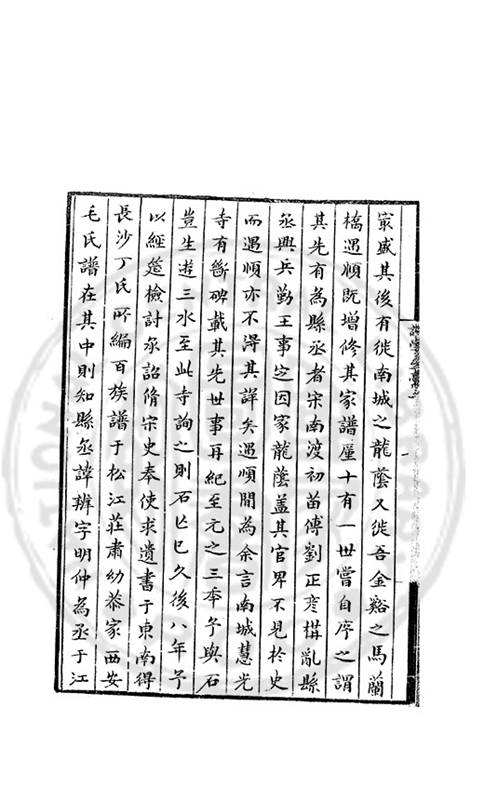 冣盛其後有徙南城之龍䕃又徙吾金谿之馬蘭
橋遇順既增修其家譜厪十有一世嘗自序之謂
其先有為縣丞者宋南渡初苗傅劉正彦構亂縣
丞興兵勤王事定因家龍䕃盖其官畀不見於史
而遇順亦不淂其詳矣遇順閒為余言南城慧光
寺有斷碑載其先世事再紀至元之三年予與石
豈生遊三水至此寺詢之則石亡已久後八年予
以經筵檢討奉詔脩宋史奉使求遺書于東南得
長沙丁氏所編百族譜于松江莊肅幼恭家西安
毛氏譜在其中則知縣丞諱辨字明仲為丞于江